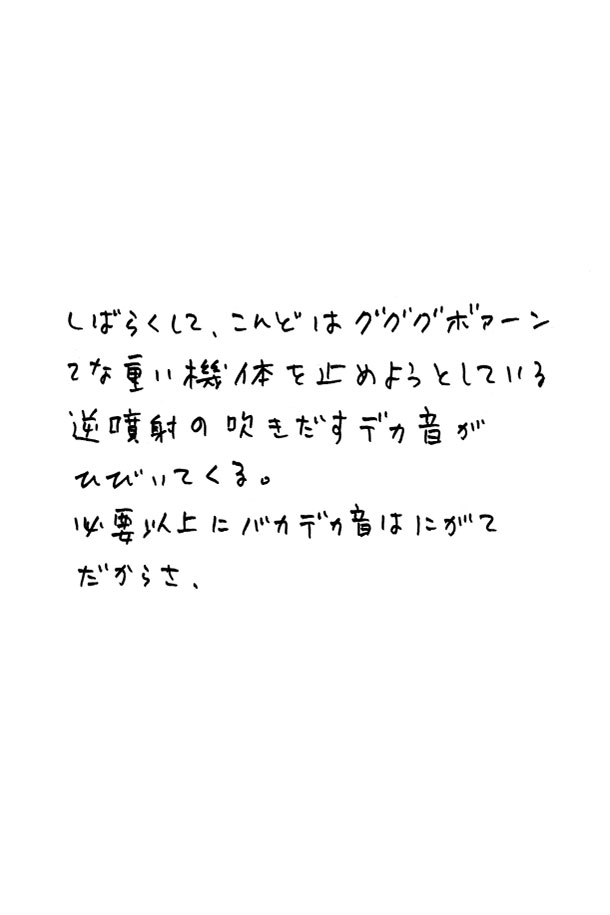 しばらくして、こんどはグググボァーン
てな重い機体を止めようとしている
逆噴射の吹きだすデカ音が
ひびいてくる。
必要以上にバカデカ音はにがて
だからさ、